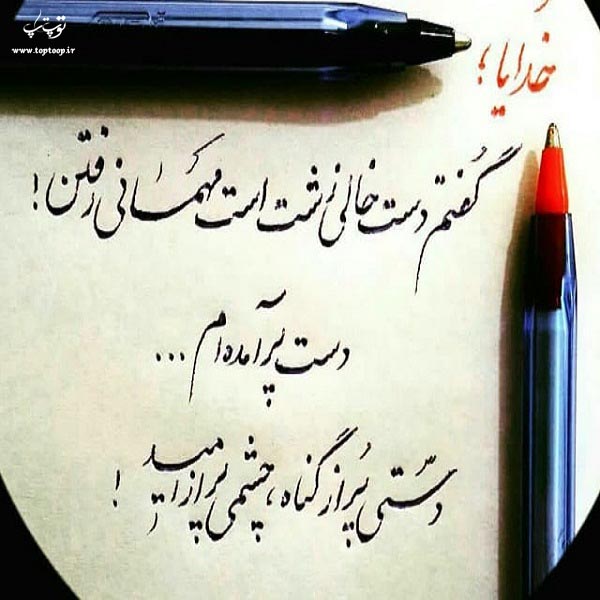 توپتاپ
www.toptoop.ir
خدایا؛
گفتم دست خالی زشت است مهمانی رفتن!
دست پر آمده ام ...
دستی پُر از گناه، چشمی پر از امید!